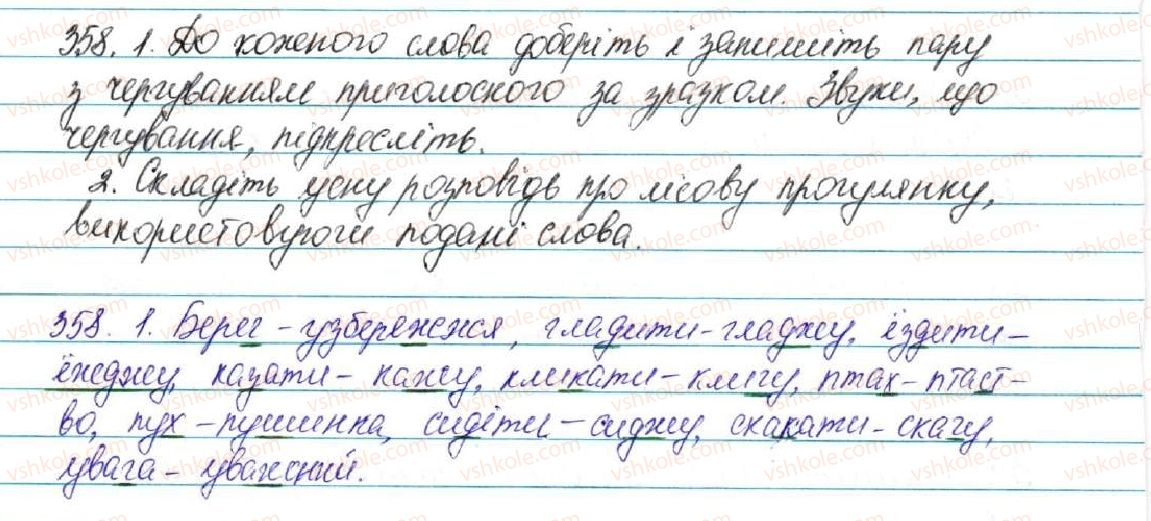 358. 1. До кожного слова доберіть і запишіть пару
з чергуванням приголосного за зразком. Звуки, що
чергування, підкресліть.
2. Складіть усну розповідь про лісову прогулянку,
використовуючи подані слова.
358. 1. Берег - узбережжя, гладити - гладжу, їздити -
їжджу, казати - кажу, кликати - кличу, птах - птаст-
во, пух - пушинка, сидіти - сиджу, скакати - скачу,
увага - уважний.